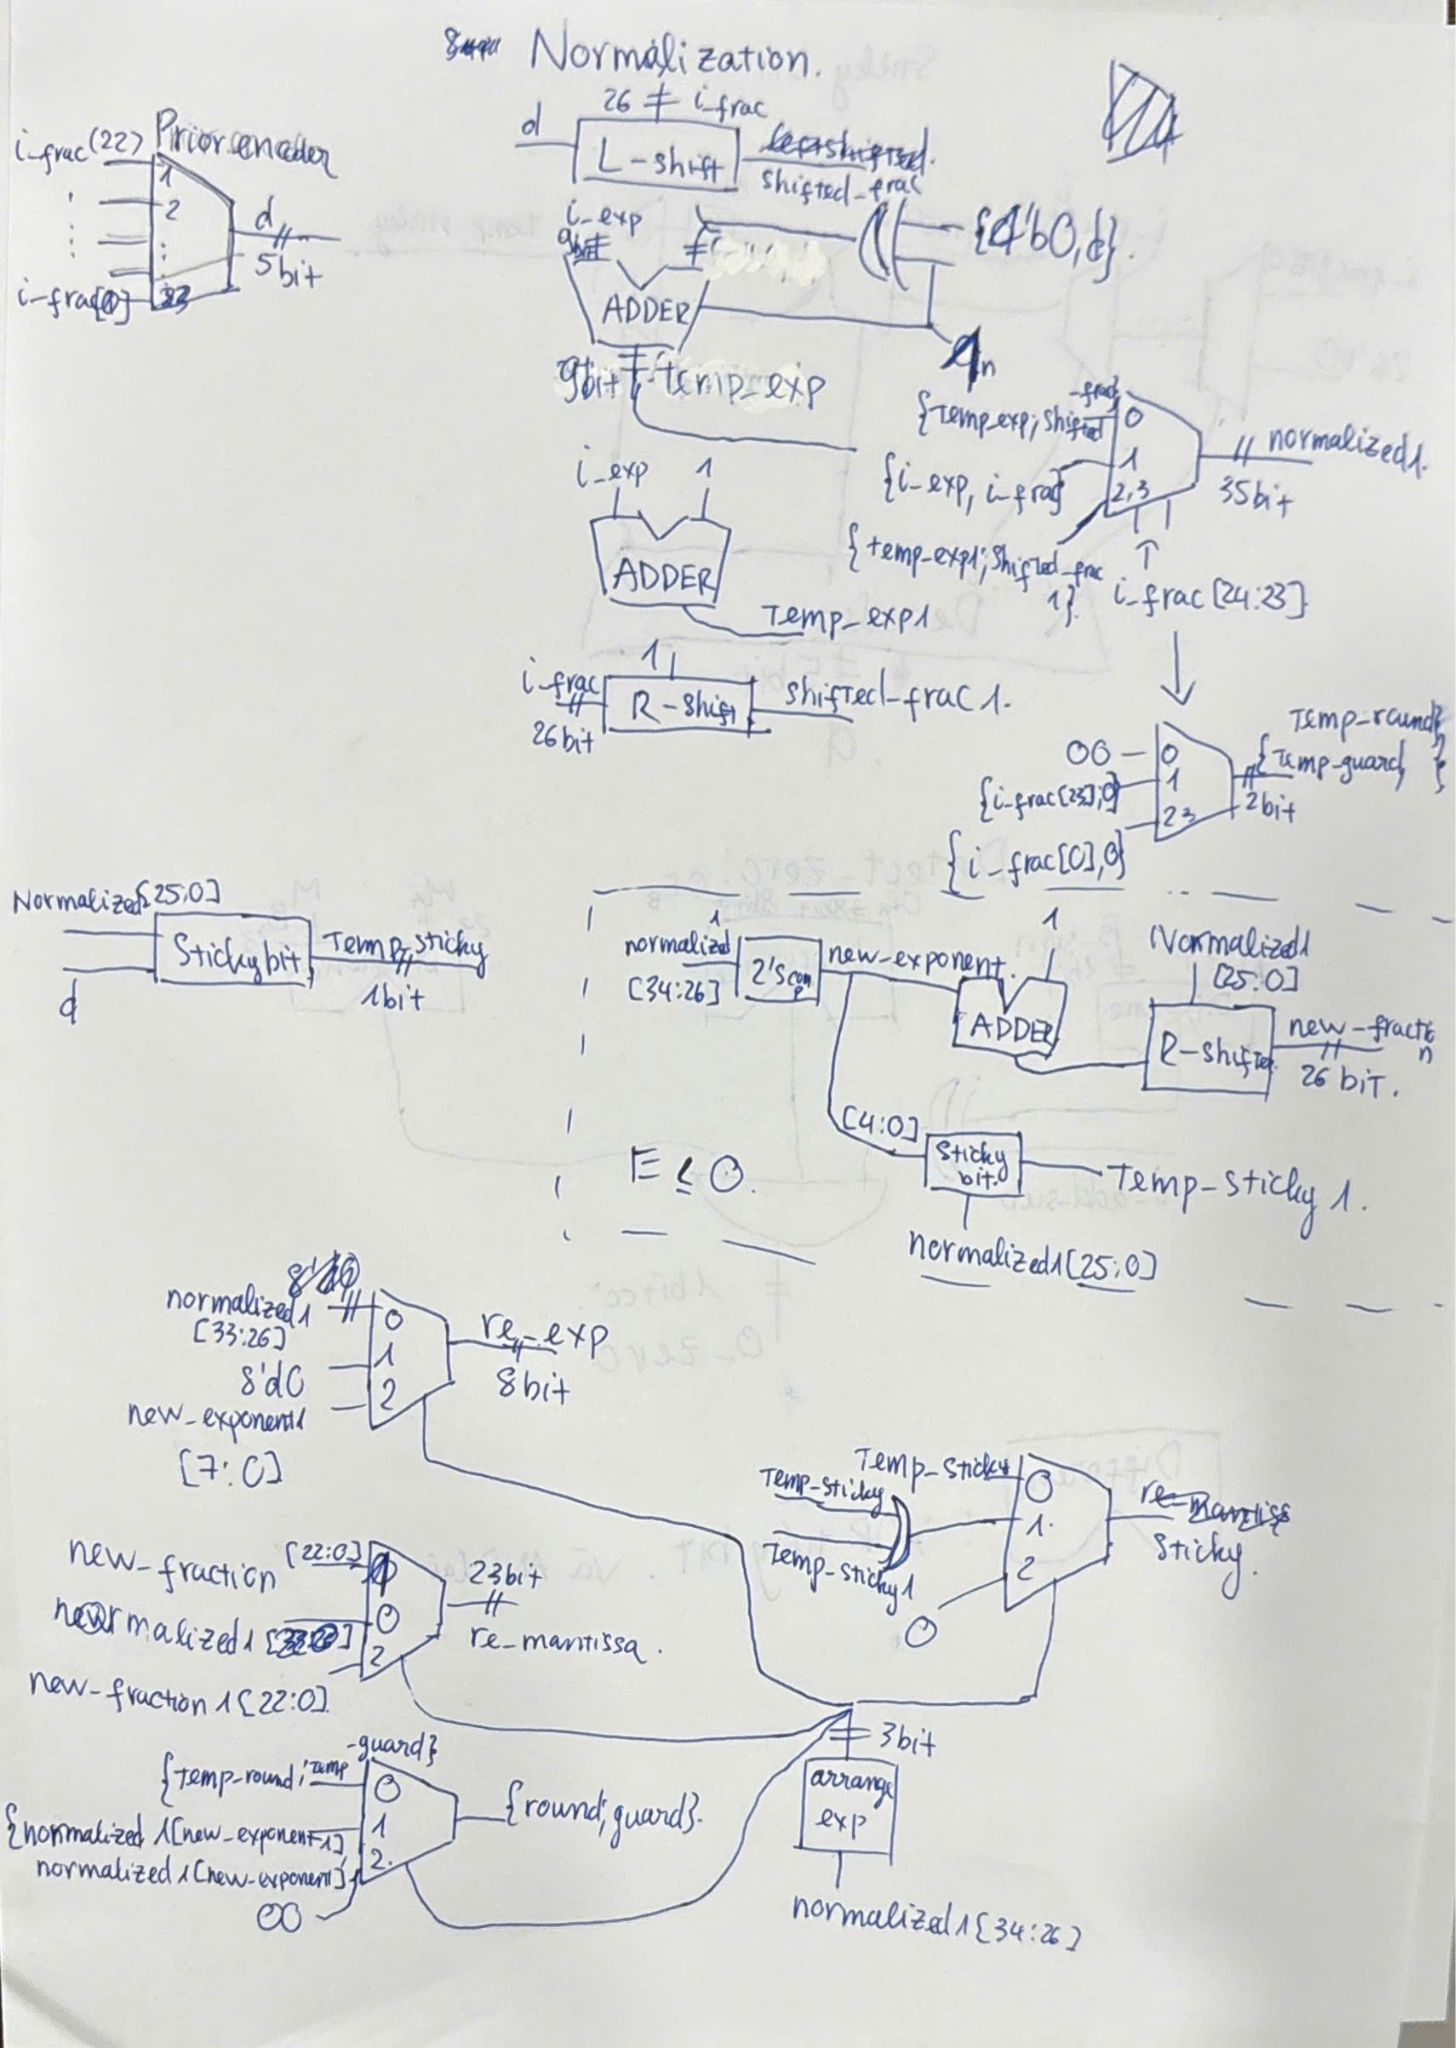 Normalization.
i_frac(22) Prior encoder
1
2
i-frac[0] 23
d
5bit
26 i_frac
d
L-shift
shifted_frac
i_exp
9bit
{4'b0,d}.
ADDER
9bit temp_exp
{Temp_exp; Shifted
-frac}
0
{i_exp, i_frac}
1
2,3
{temp_exp1; Shifted_frac
1}.
i_frac[24:23]
normalized1.
35bit
i_exp 1
ADDER
Temp_exp1
1
i_frac
26bit
R-shift
shifted_frac 1.
00
0
{i_frac[23],0}
1
2 3
{i_frac[0],0}
Temp_round}
{Temp_guard, }
2bit
Normalized[25:0]
d
Sticky bit
Temp_sticky
1bit
1
normalized
[34:26]
2's com
p
new_exponent.
1
ADDER
Normalized1
[25:0]
R-shifter
new-fractio
n
26 bit.
[4:0]
Sticky
bit.
Temp_sticky 1.
normalized1[25:0]
E ≤ 0.
normalized1
[33:26]
0
8'd0
1
new_exponent1
2
[7:0]
re_exp
8bit
Temp_sticky
0
Temp_sticky
1.
Temp_sticky1
2
0
Sticky.
new_fraction [22:0]
1
normalized1
0
new-fraction 1[22:0]
2
23bit
re_mantissa.
{temp-round; temp
-guard}
0
{normalized 1[new_exponent+1],
1
normalized1[new-exponent]}
2.
00
{round; guard}.
3bit
arrange
exp
normalized1[34:26]